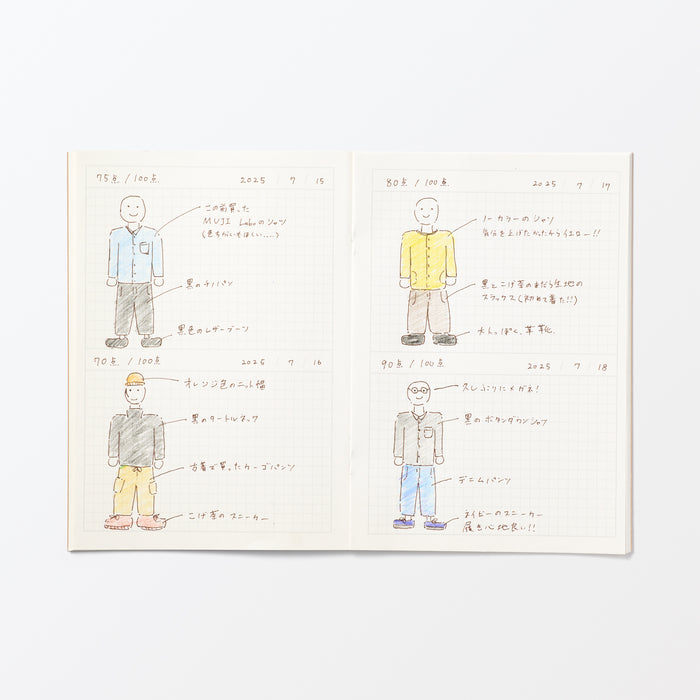 75点 / 100点 2025 / 7 / 15
この前買った
MUJI Laboのシャツ
(色ちがいもほしい……)
黒のチノパン
黒色のレザーブーツ
70点 / 100点 2025 / 7 / 16
オレンジ色のニット帽
黒のタートルネック
古着で買ったカーゴパンツ
こげ茶のスニーカー
80点 / 100点 2025 / 7 / 17
ノーカラーのシャツ
気分を上げたかたからイエロー!!
黒とこげ茶のまだら生地の
スラックス(初めて着た!!)
大人っぽく、革靴。
90点 / 100点 2025 / 7 / 18
久しぶりにメガネ!
黒のボタンダウンシャツ
デニムパンツ
ネイビーのスニーカー
履き心地良い!!